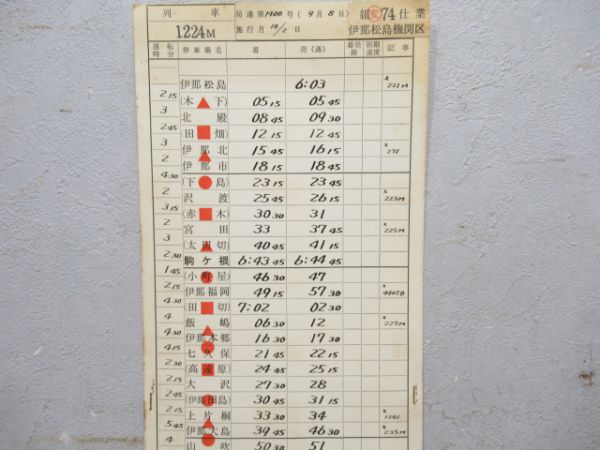 列車 局達第1400号(9月8日) 組変74仕業
1224M 施行月10/2日 伊那松島機関区
運転時分 停車場名 着 発(通) 着発線 制限速度 記事
伊那松島 6:03 x 221M
2 15
(木下) 05 15 05 45
3
北殿 08 45 09 30
2 45
(田畑) 12 15 12 45
3
伊那北 15 45 16 15 x 271
2
伊那市 18 15 18 45
4 30
(下島) 23 15 23 45
2
沢渡 25 45 26 15 x 223M
3 15
(赤木) 30 30 31
2
宮田 33 37 45 x 225M
3
(太田切) 40 45 41 15
2 30
駒ケ根 6:43 45 6:44 45
1 45
(小町屋) 46 30 47
2 15
伊那福岡 49 15 57 30 x
4 30
(田切) 7:02 02 30
4
飯嶋 06 30 12 x 227M
4 30
伊那本郷 16 30 17 30
4 15
七久保 21 45 22 15
2 30
(高遠原) 24 45 25 15
2 15
大沢 27 30 28
2 45
(伊那田島) 30 45 31 15
2 15
上片桐 33 30 34 x 1291
5 45
伊那大島 39 45 46 30 x 235M
4
山吹 50 30 51